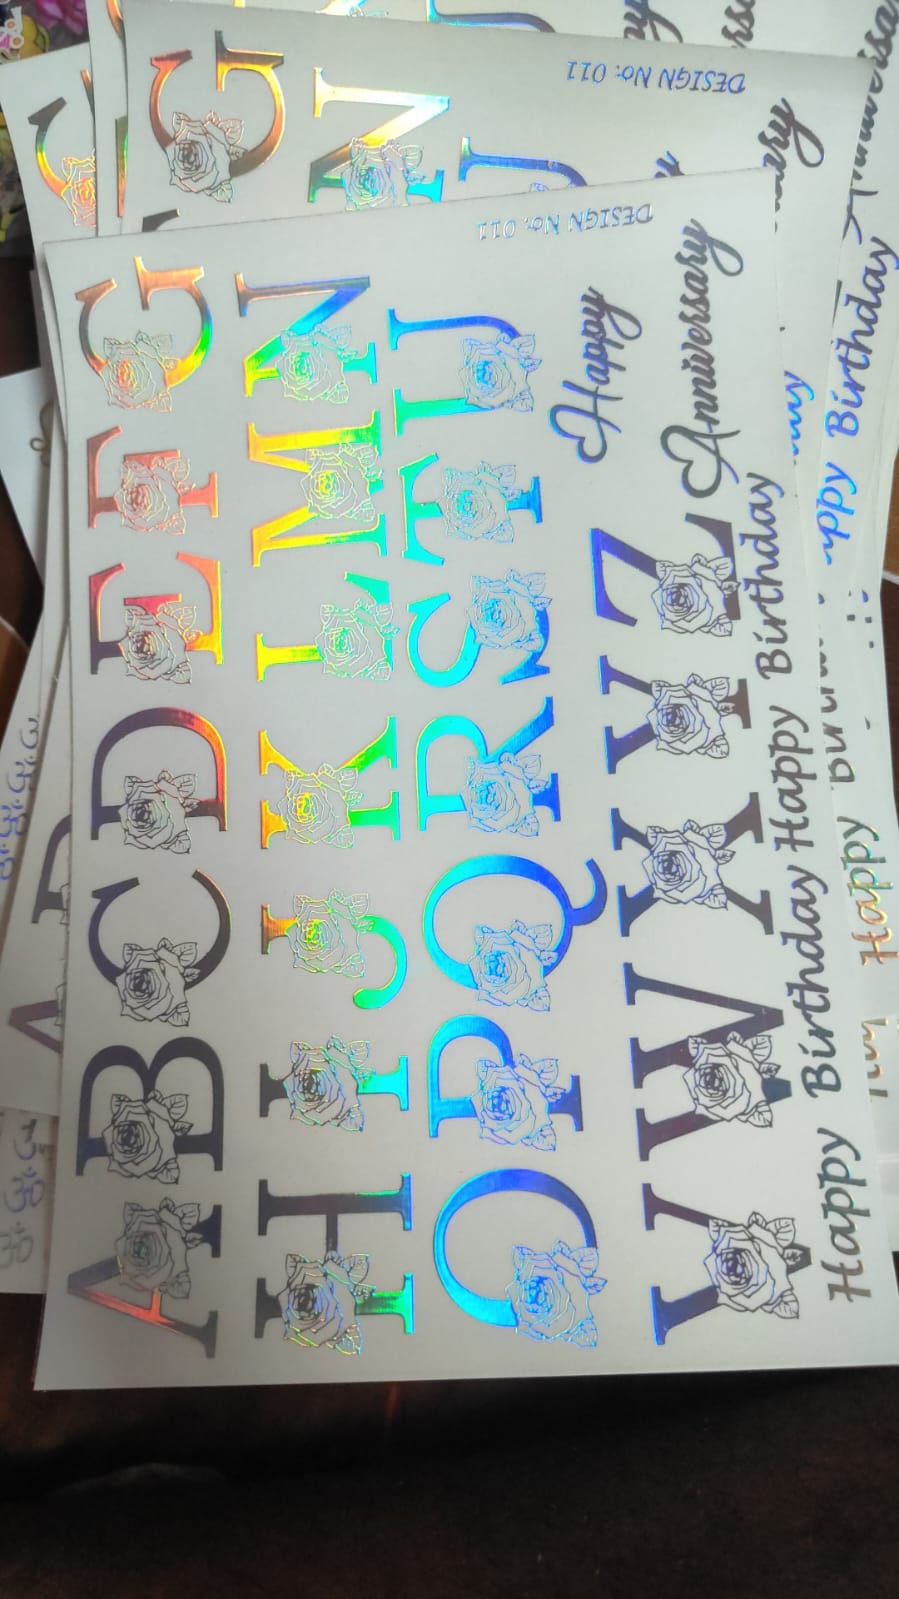 A B C D E F G
H I J K L M N
O P Q R S T U
V W X Y Z
Happy
Anniversary
Happy Birthday Happy Birthday
DESIGN No: 011
G
N
DESIGN No: 011
Happy
Birthday